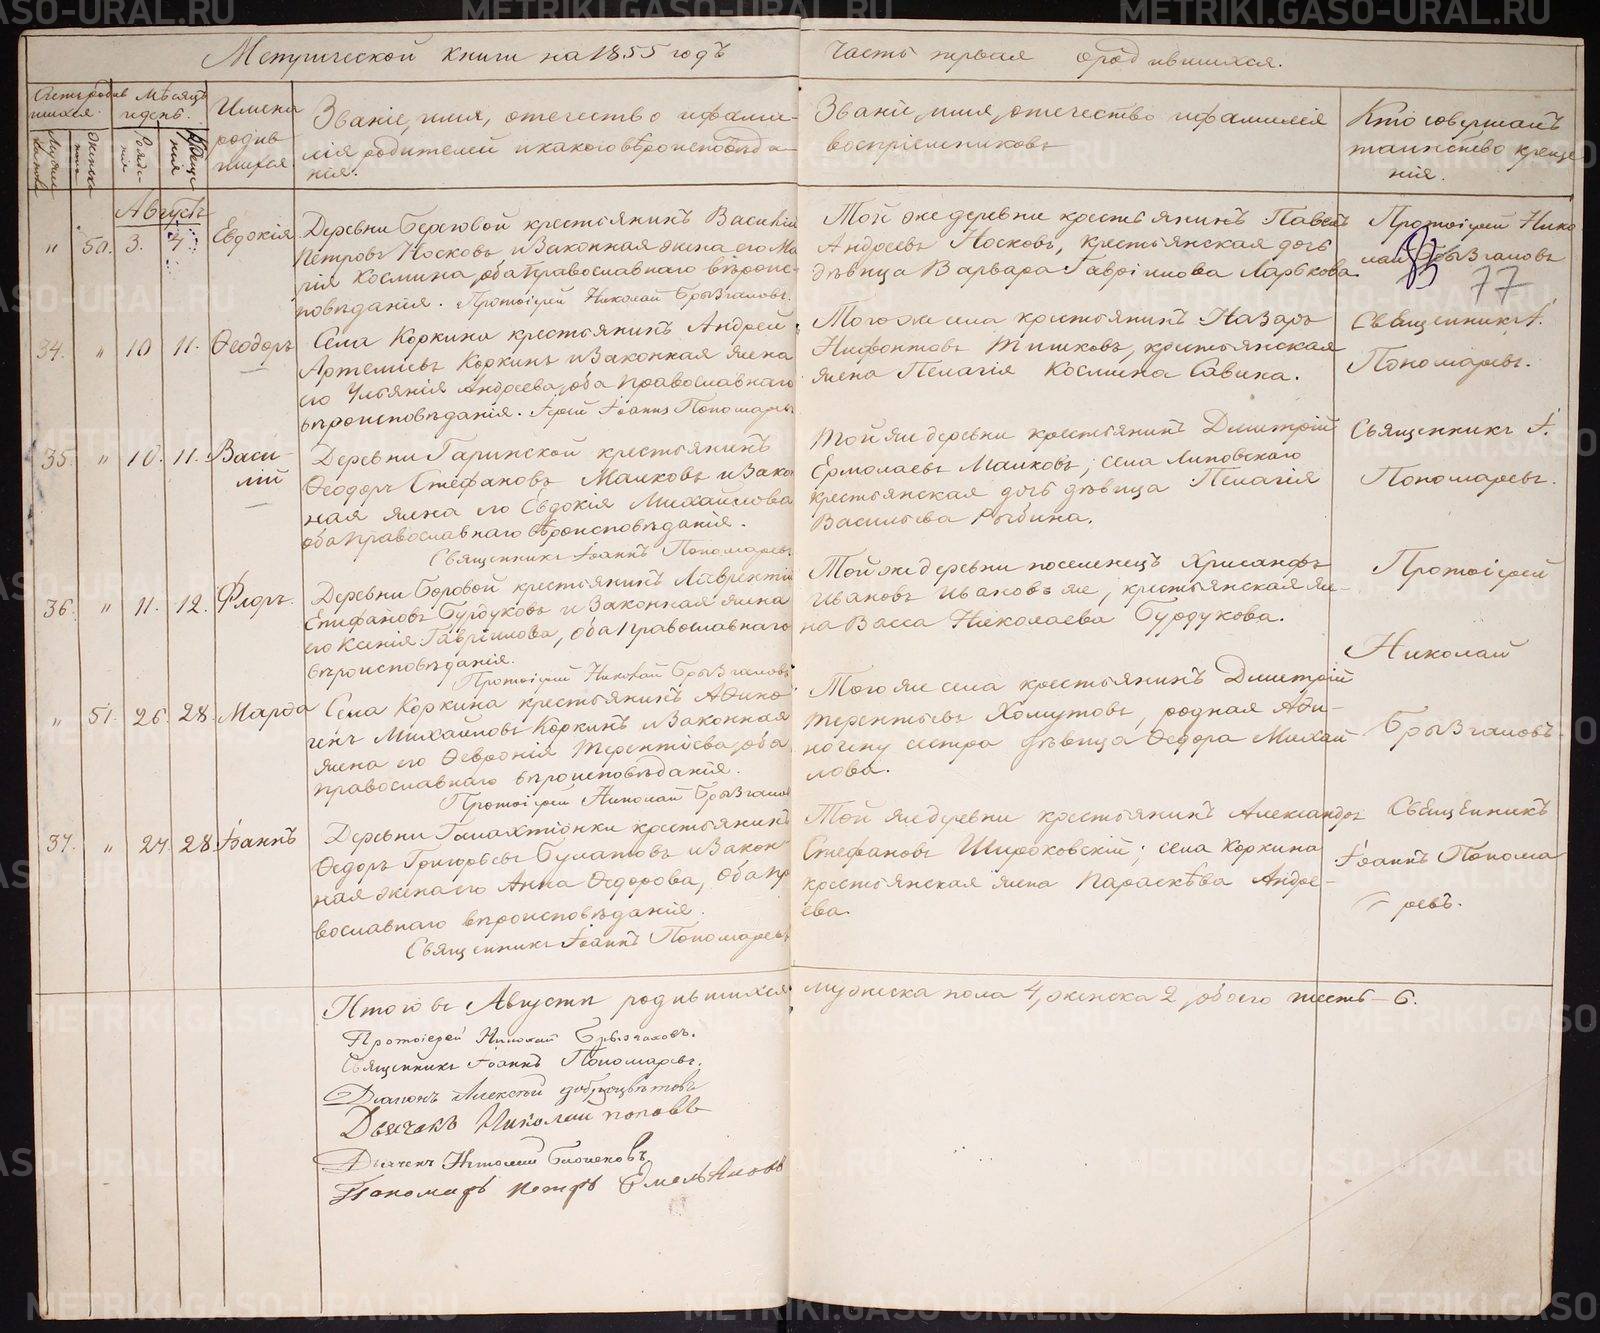 Метрической книги на 1855 годъ
часть первая о родившихся.
Счетъ родив
шихся.
Мѣсяцъ
и день.
Имена
родив
шихся
Мужеска
пола
Женска
пола
Рожде
нія
Креще
нія
Званіе, имя, отечество и фами-
лія родителей и какого вѣроисповѣда-
нія.
Званіе, имя, отечество и фамилія
воспріемниковъ
Кто совершалъ
таинство креще
нія.
Августъ
" 50. 3. 4. Евдокія
Деревни Береговой крестьянинъ Василій
Петровъ Носковъ, и законная жена его Ма
рія Космина, оба православнаго вѣроис-
повѣданія. Протоіерей Николай Брызгаловъ.
Той же деревни крестьянинъ Павелъ
Андреевъ Носковъ, крестьянская дочь
дѣвица Варвара Гавріилова Ларькова
Протоіерей Нико
лай Брызгаловъ
77
34. " 10 11. Ѳеодоръ
Села Коркина крестьянинъ Андрей
Артемьевъ Коркинъ и законная жена
его Ульянія Андреева, оба православнаго
вѣроисповѣданія. Іерей Іоаннъ Пономаревъ
Того же села крестьянинъ Назаръ
Нифонтовъ Тишковъ, крестьянская
жена Пелагія Космина Савина.
Священникъ І.
Пономаревъ.
35. " 10. 11. Васи-
лій
Деревни Гаринской крестьянинъ
Ѳеодоръ Стефановъ Маиковъ и закон
ная жена его Евдокія Михаилова
оба православнаго вѣроисповѣданія.
Священникъ Іоаннъ Пономаревъ
Той же деревни крестьянинъ Димитрій
Ермолаевъ Маиковъ; села Липовскаго
крестьянская дочь дѣвица Пелагія
Васильева Рыбина.
Священникъ І.
Пономаревъ.
36. " 11. 12. Флоръ.
Деревни Боровой крестьянинъ Лаврентій
Епифановъ Бурдуковъ и законная жена
его Ксенія Гавріилова, оба православнаго
вѣроисповѣданія.
Протоіерей Николай Брызгаловъ
Той же деревни поселенецъ Хрисанфъ
Ивановъ Ивановъ же, крестьянская же-
на Васса Николаева Бурдукова.
Протоіерей
Николай
Брызгаловъ.
" 51. 26. 28. Марѳа
Села Коркина крестьянинъ Аѳино-
генъ Михаиловъ Коркинъ и законная
жена его Ѳевронія Терентіева, оба
православнаго вѣроисповѣданія.
Протоіерей Николай Брызгаловъ
Того же села крестьянинъ Димитрій
Терентьевъ Хомутовъ, родная Аѳи-
ногену сестра дѣвица Ѳедора Михаи
лова.
37. " 27. 28. Іоаннъ
Деревни Галактіонки крестьянинъ
Ѳедоръ Григорьевъ Булатовъ и закон
ная жена его Анна Ѳедорова, оба пра
вославнаго вѣроисповѣданія.
Священникъ Іоаннъ Пономаревъ
Той же деревни крестьянинъ Александръ
Стефановъ Широковскій; села Коркина
крестьянская жена Параскева Андре-
ева.
Священникъ
Іоаннъ Понома
ревъ.
Итого въ Августѣ родившихся мужеска пола 4, женска 2, обоего шесть – 6.
Протоіерей Николай Брызгаловъ.
Священникъ Іоаннъ Пономаревъ.
Діаконъ Алексѣй
Дьячекъ Николай Поповъ
Дьячекъ
Пономарь Петръ Емельяновъ
METRIKI.GASO-URAL.RU